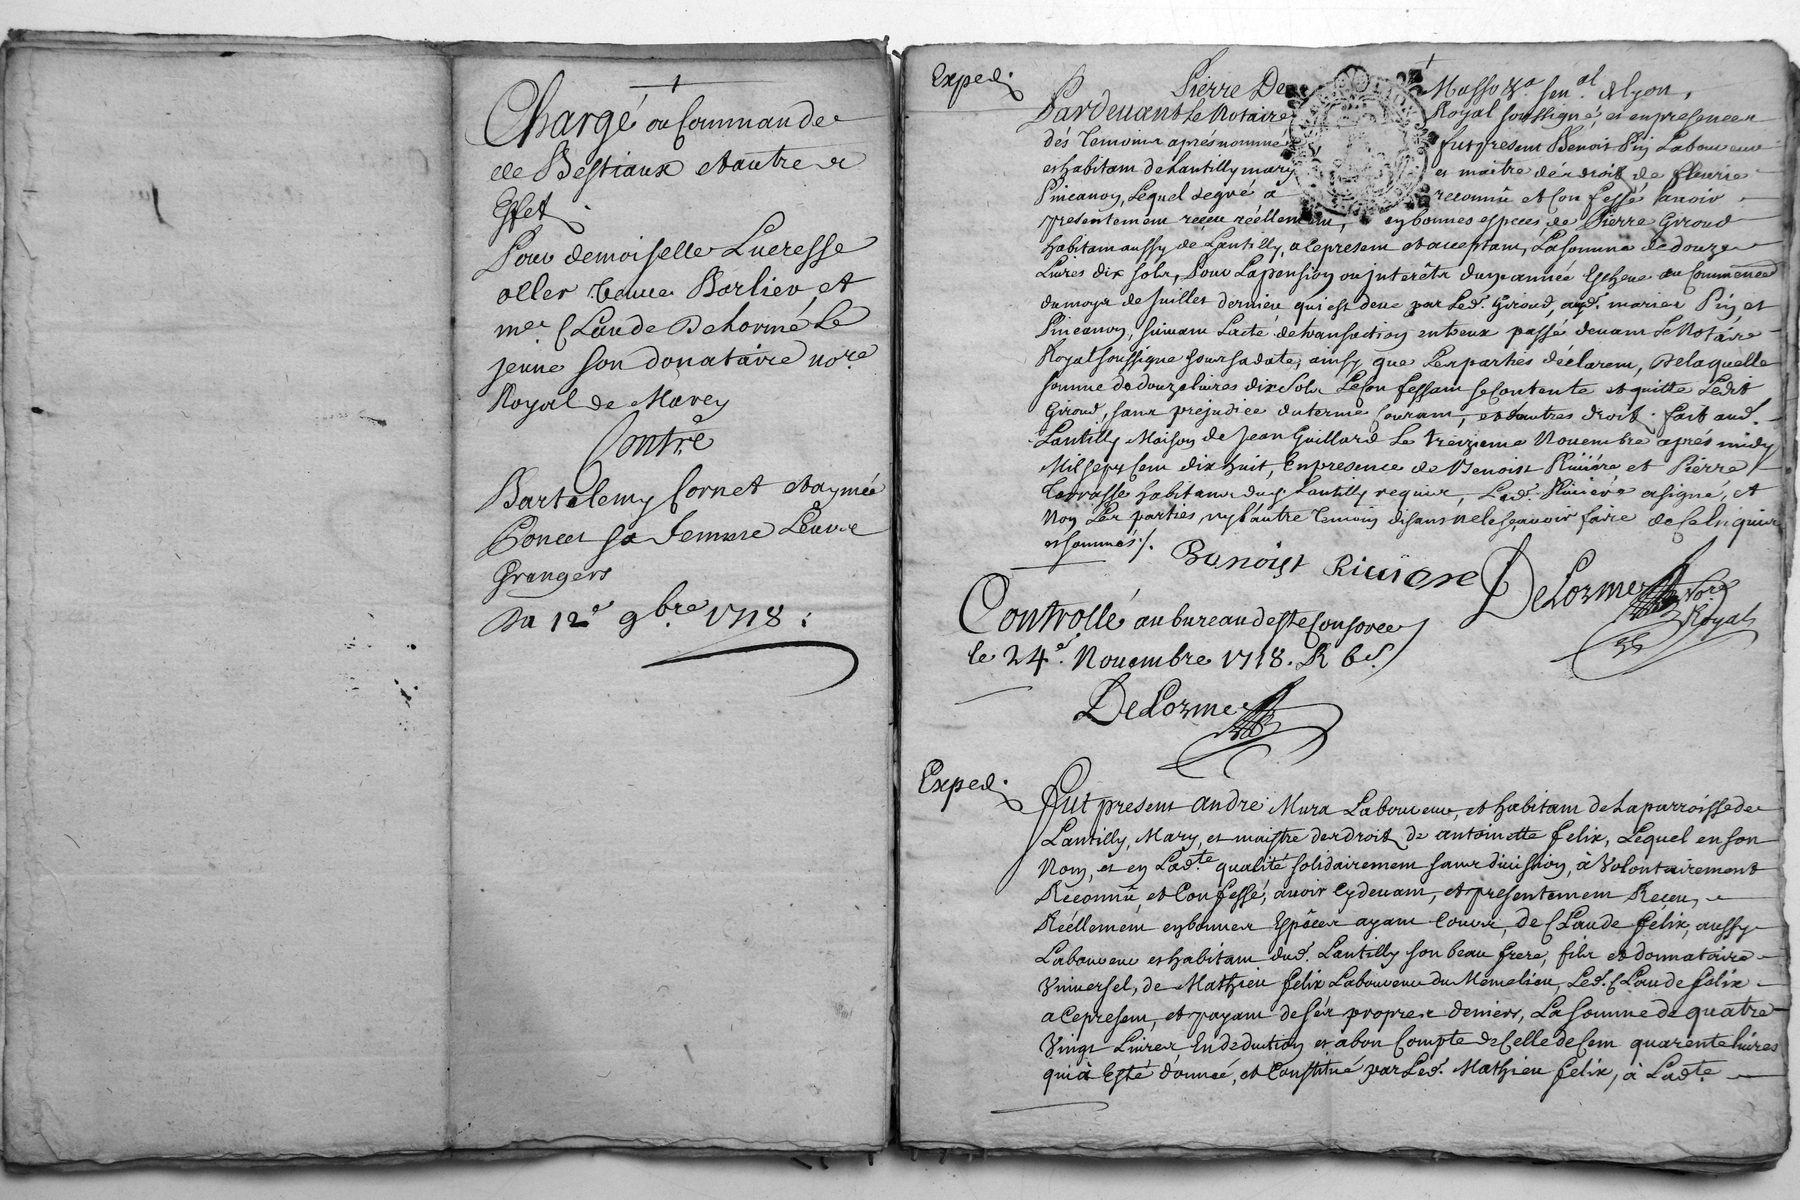 Chargé ou Commande
de Bestiaux et autres
Effet
Pour demoiselle Lucresse
oller veuve Barlier, et
me. Claude Delorme Le
jeune son donataire nore.
Royal de Marcy
Contre
Bartelemy Cornet et aymée
Poncet sa femme Leurs
Grangers
Du 12e 9bre 1718 :
Exped.
Pierre De Masso &a. sen.al de lyon,
Pardevant Le Notaire Royal soussigné, et en presence
dés temoins aprés nommé fut present Benoit Pin Laboureur
et habitant de Lantilly mary et maitre dés droits de fleurie
Pincanon, Lequel de gré a reconnû et Confessé avoir
presentement réceu réellement, en bonnes especes, de Pierre Giroud
habitant aussy de Lantilly, a Ce present et acceptant, La somme de douze
Livres dix sols, Pour La pension ou interêts d'une année Escheue au Commencem
du moys de Juillet dernier, qui est deue par Led. Giroud, aud. mariés Pin, et
Pincanon, suivant L'acte de transaction entreux passé devant Le Notaire
Royal soussigné sous sa date, ainsy que Les parties déclarent, De laquelle
somme de douze livres dix sols Le Confessant se Contente et quitte Ledit
Giroud, sans prejudice du terme Courant, et d'autres droits. fait aud.
Lantilly Maison de Jean Guillard Le treizieme Novembre aprés midy
Mil sept Cent dix huit, En presence de Benoist Riviére et Pierre
Terrasse habitants dud. Lantilly requis, Led. Riviére a signé, et
Non Les parties, ny L'autre temoin disans ne le sçavoir faire de Ce Enquis
et sommés ./.
Benoist Riuiere DeLorme Nore
Royal
Controllé au bureau deste Consorce
le 24e. Novembre 1718. R 6s.
DeLorme
Exped.
Fut present andré Mura Laboureur, et habitant de La parroisse de
Lantilly, Mary, et maistre des droits de antoinette felix, Lequel en son
Nom, et en Ladte. qualité solidairement sans division, à Volontairement
Reconnû, et Confessé, avoir Cy devant, et presentement Receu,
Réellement en bonnes Espêces ayant Cours, de Claude félix, aussy
Laboureur et habitant dud. Lantilly son beau frere, fils et donnataire
Vniversel, de Mathieu felix Laboureur du Memelieu, Led. Claude felix
a Ce present, et payant de sés propres deniers, La somme de quatre
Vingt Livres En deduction et a bon Compte de Celle de Cent quarente livres
qui à Esté donnée, et Constitué par Led. Mathieu felix, à Ladte.